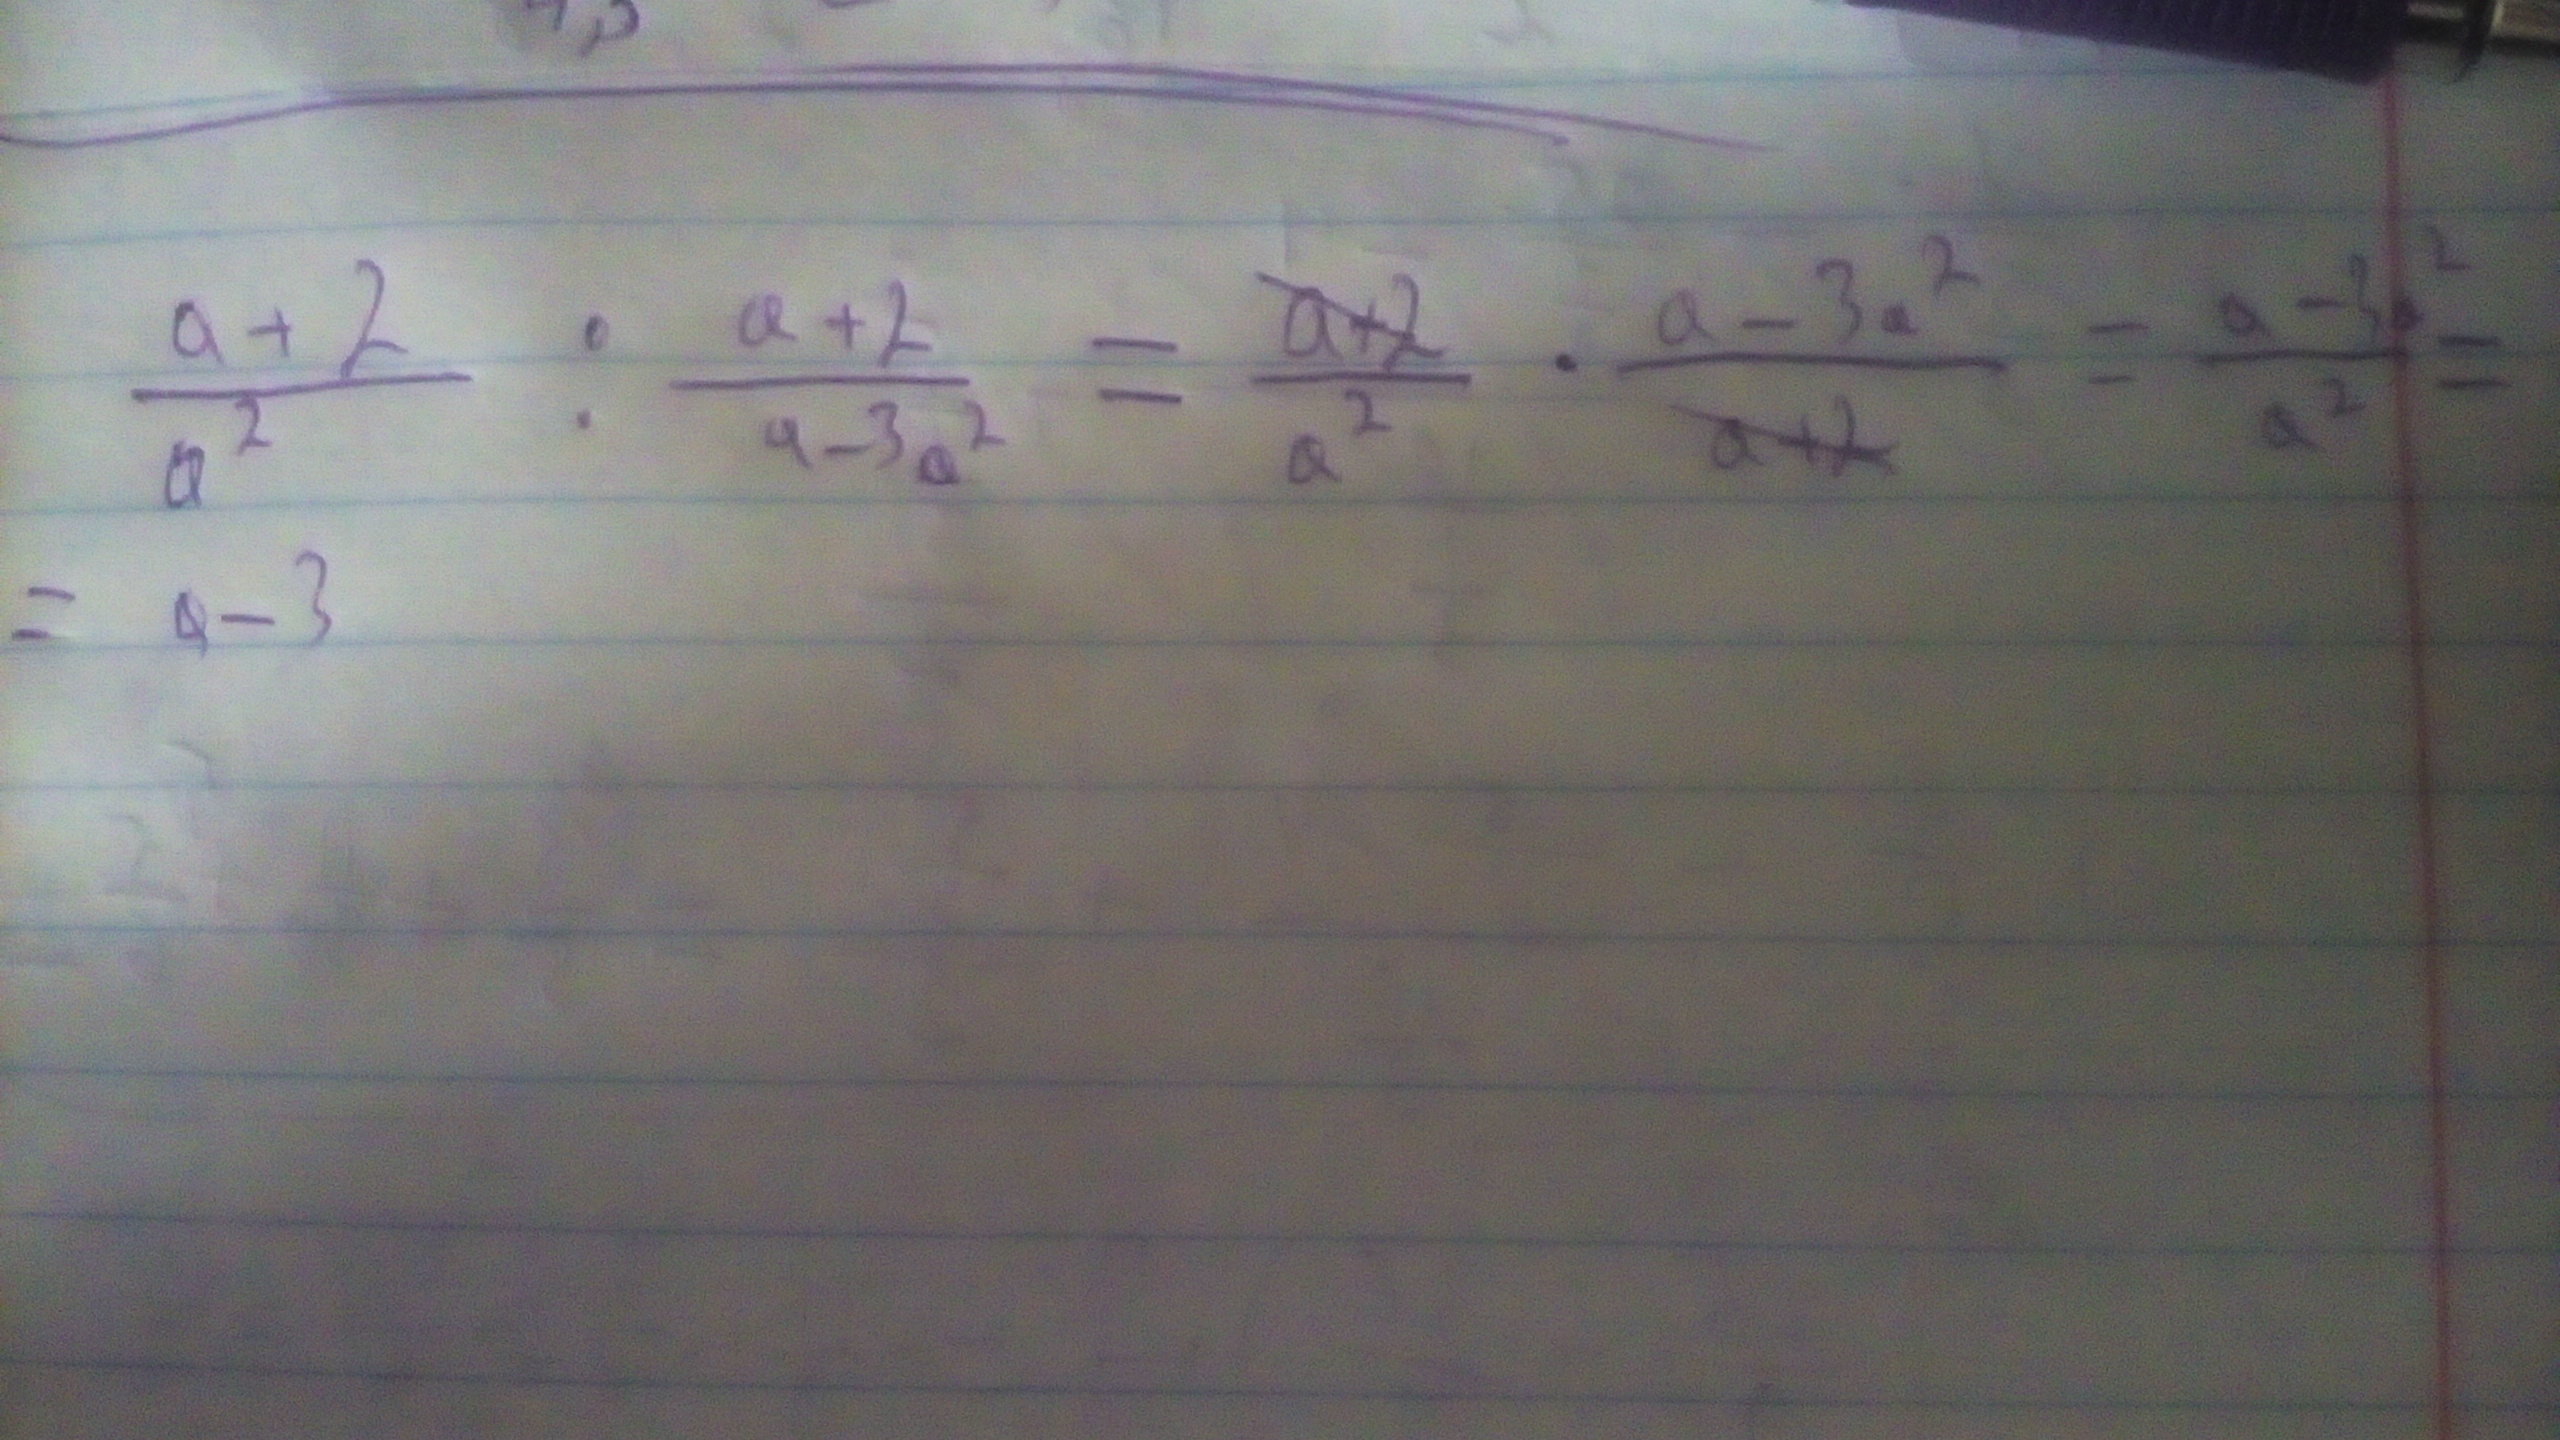 4,5
a+2/a² : a+2/a-3a² = a+2/a² · a-3a²/a+2 = a-3a²/a² =
= a-3